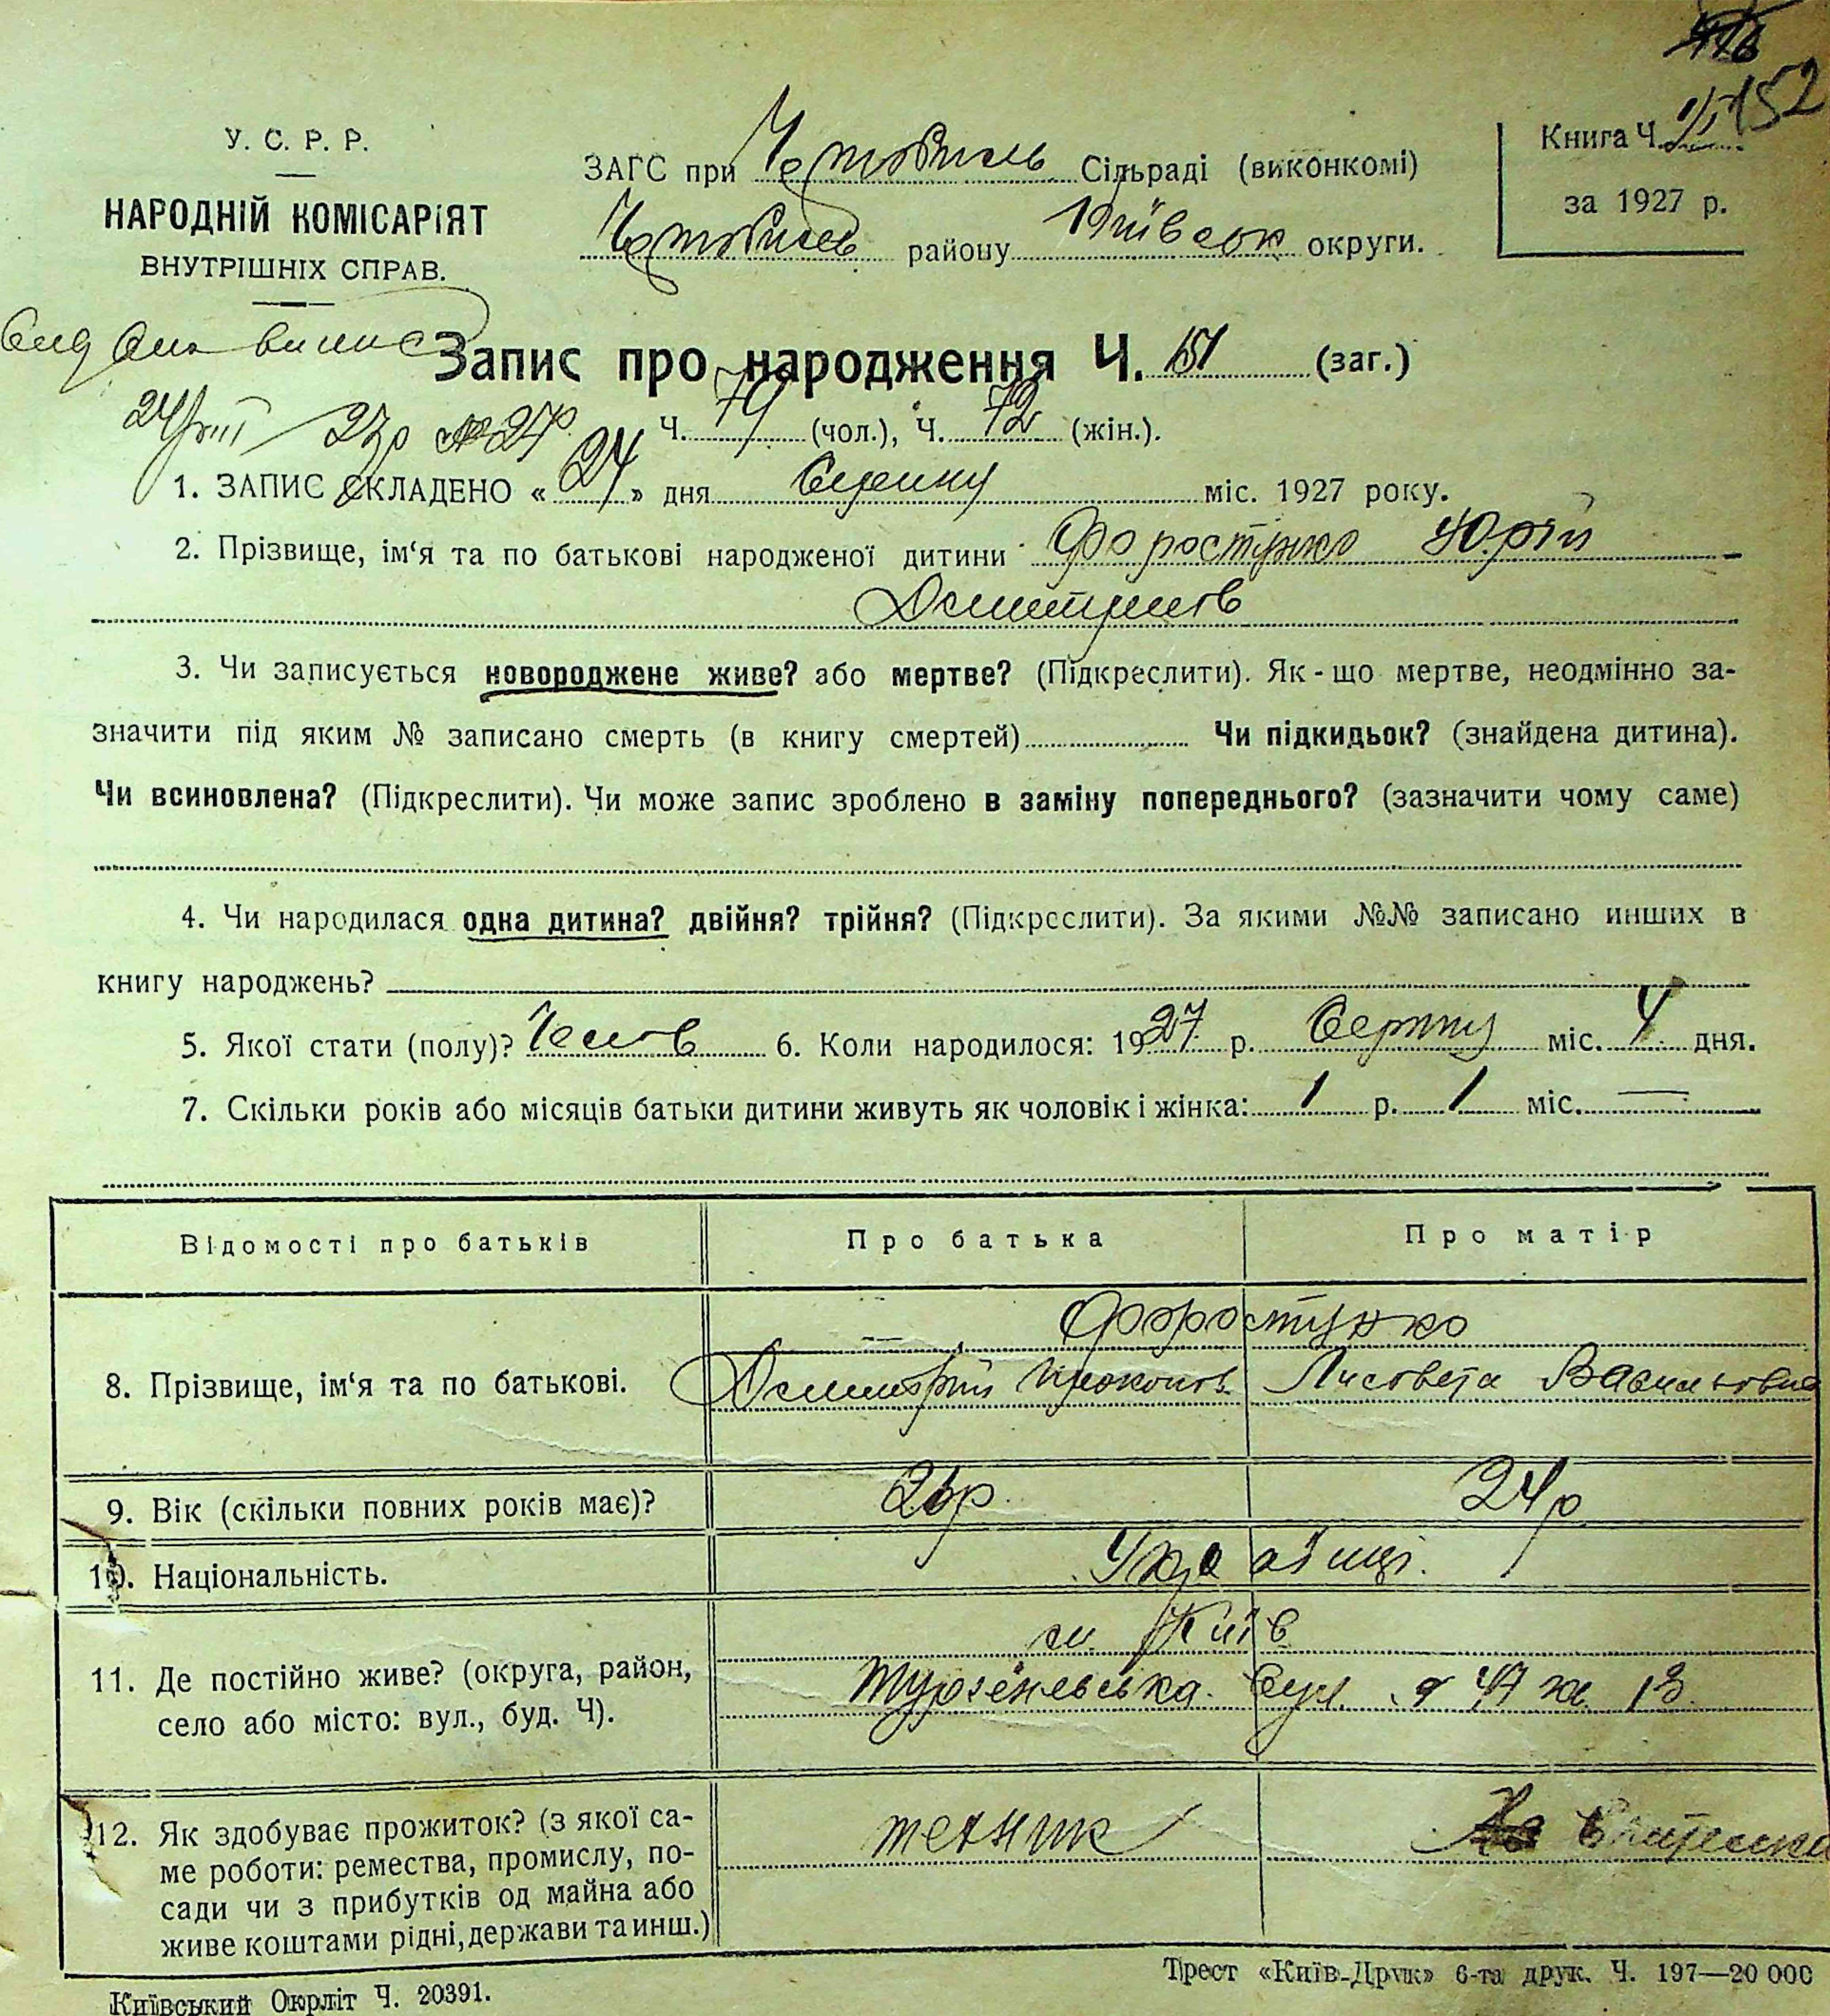 152
У. С. Р. Р.
НАРОДНІЙ КОМІСАРІЯТ
ВНУТРІШНІХ СПРАВ.
ЗАГС при Чорнобиль Сільраді (виконкомі)
Чорнобиль району Київськ округи.
Книга Ч.
за 1927 р.
Видана виписъ
Запис про народження Ч. 151 (заг.)
24/VIII 27р № 27
Ч. 79 (чол.), Ч. 72 (жін.).
1. ЗАПИС СКЛАДЕНО « 24 » дня Серпня міс. 1927 року.
2. Прізвище, ім'я та по батькові народженої дитини Форостунко Юрій
Дмитриєв
3. Чи записується новороджене живе? або мертве? (Підкреслити). Як-що мертве, неодмінно за-
значити під яким № записано смерть (в книгу смертей) Чи підкидьок? (знайдена дитина).
Чи всиновлена? (Підкреслити). Чи може запис зроблено в заміну попереднього? (зазначити чому саме)
4. Чи народилася одна дитина? двійня? трійня? (Підкреслити). За якими №№ записано инших в
книгу народжень?
5. Якої стати (полу)? Чолов 6. Коли народилося: 1927 р. Серпня міс. 4 дня.
7. Скільки років або місяців батьки дитини живуть як чоловік і жінка: 1 р. 1 міс. —
Відомості про батьків Про батька Про матір
Форостунко
8. Прізвище, ім'я та по батькові. Дмитрій Прокопов. Лисовета Васильовна
9. Вік (скільки повних років має)? 26р 24р
10. Національність. Українці.
м. Київ
11. Де постійно живе? (округа, район,
село або місто: вул., буд. Ч).
вул. 47 13
12. Як здобуває прожиток? (з якої са-
ме роботи: ремества, промислу, по-
сади чи з прибутків од майна або
живе коштами рідні, держави та инш.)
технік Вчителька
Київський Окрліт Ч. 20391.
Трест «Київ-Друк» 6-та друк. Ч. 197—20 000